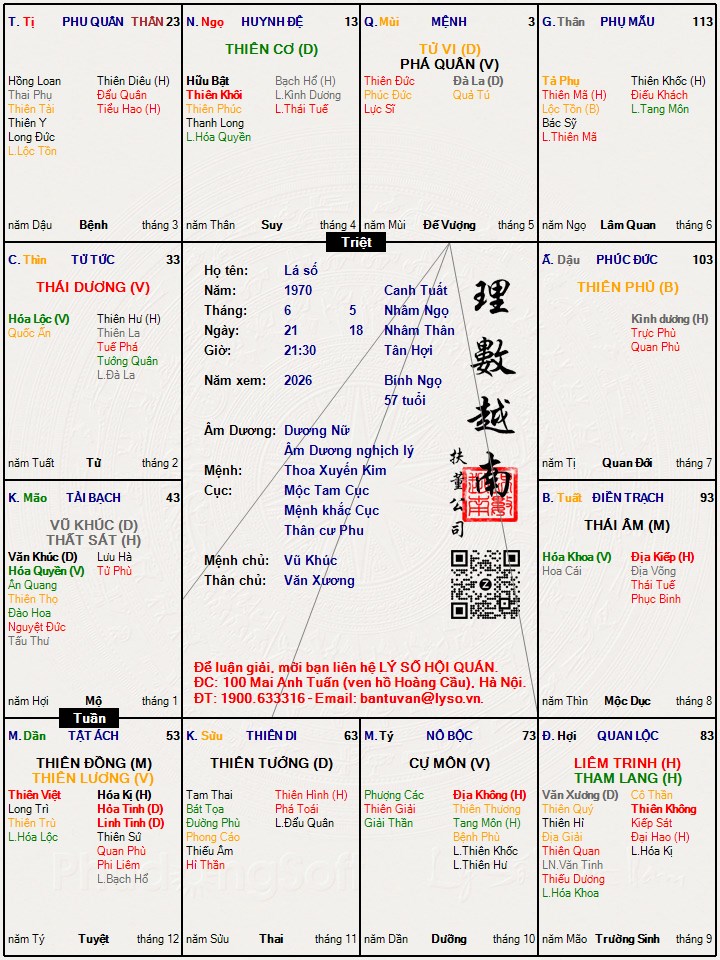 T. Tị PHU QUÂN THÂN 23
Hồng Loan Thiên Diêu (H)
Thai Phụ Đẩu Quân
Thiên Tài Tiểu Hao (H)
Thiên Y
Long Đức
L.Lộc Tồn
năm Dậu Bệnh tháng 3
N. Ngọ HUYNH ĐỆ 13
THIÊN CƠ (D)
Hữu Bật Bạch Hổ (H)
Thiên Khôi L.Kình Dương
Thiên Phúc L.Thái Tuế
Thanh Long
L.Hóa Quyền
năm Thân Suy tháng 4
Q. Mùi MỆNH 3
TỬ VI (D)
PHÁ QUÂN (V)
Thiên Đức Đà La (D)
Phúc Đức Quả Tú
Lực Sĩ
năm Mùi Đế Vượng tháng 5
G. Thân PHỤ MẪU 113
Tả Phụ Thiên Khốc (H)
Thiên Mã (H) Điếu Khách
Lộc Tồn (B) L.Tang Môn
Bác Sỹ
L.Thiên Mã
năm Ngọ Lâm Quan tháng 6
Triệt
C. Thìn TỬ TỨC 33
THÁI DƯƠNG (V)
Hóa Lộc (V) Thiên Hư (H)
Quốc Ấn Thiên La
Tuế Phá
Tướng Quân
L.Đà La
năm Tuất Tử tháng 2
Họ tên: Lá số
Năm: 1970 Canh Tuất
Tháng: 6 5 Nhâm Ngọ
Ngày: 21 18 Nhâm Thân
Giờ: 21:30 Tân Hợi
Năm xem: 2026 Bính Ngọ
57 tuổi
Âm Dương: Dương Nữ
Âm Dương nghịch lý
Mệnh: Thoa Xuyến Kim
Cục: Mộc Tam Cục
Mệnh khắc Cục
Thân cư Phu
Mệnh chủ: Vũ Khúc
Thân chủ: Văn Xương
理數越南
扶董公司
Để luận giải, mời bạn liên hệ LÝ SỐ HỘI QUÁN.
ĐC: 100 Mai Anh Tuấn (ven hồ Hoàng Cầu), Hà Nội.
ĐT: 1900.633316 - Email: bantuvan@lyso.vn.
Ấ. Dậu PHÚC ĐỨC 103
THIÊN PHỦ (B)
Kình dương (H)
Trực Phù
Quan Phủ
năm Tị Quan Đới tháng 7
K. Mão TÀI BẠCH 43
VŨ KHÚC (D)
THẤT SÁT (H)
Văn Khúc (D) Lưu Hà
Hóa Quyền (V) Tử Phù
Ân Quang
Thiên Thọ
Đào Hoa
Nguyệt Đức
Tấu Thư
năm Hợi Mộ tháng 1
B. Tuất ĐIỀN TRẠCH 93
THÁI ÂM (M)
Hóa Khoa (V) Địa Kiếp (H)
Hoa Cái Địa Võng
Thái Tuế
Phục Binh
năm Thìn Mộc Dục tháng 8
Tuần
M. Dần TẬT ÁCH 53
THIÊN ĐỒNG (M)
THIÊN LƯƠNG (V)
Thiên Việt Hóa Kị (H)
Long Trì Hỏa Tinh (D)
Thiên Trù Linh Tinh (D)
L.Hóa Lộc Thiên Sứ
Quan Phù
Phi Liêm
L.Bạch Hổ
năm Tý Tuyệt tháng 12
K. Sửu THIÊN DI 63
THIÊN TƯỚNG (D)
Tam Thai Thiên Hình (H)
Bát Tọa Phá Toái
Đường Phù L.Đẩu Quân
Phong Cáo
Thiếu Âm
Hỉ Thần
năm Sửu Thai tháng 11
M. Tý NÔ BỘC 73
CỰ MÔN (V)
Phượng Các Địa Không (H)
Thiên Giải Thiên Thương
Giải Thần Tang Môn (H)
Bệnh Phù
L.Thiên Khốc
L.Thiên Hư
năm Dần Dưỡng tháng 10
Đ. Hợi QUAN LỘC 83
LIÊM TRINH (H)
THAM LANG (H)
Văn Xương (D) Cô Thần
Thiên Quý Thiên Không
Thiên Hỉ Kiếp Sát
Địa Giải Đại Hao (H)
Thiên Quan L.Hóa Kị
LN.Văn Tinh
Thiếu Dương
L.Hóa Khoa
năm Mão Trường Sinh tháng 9